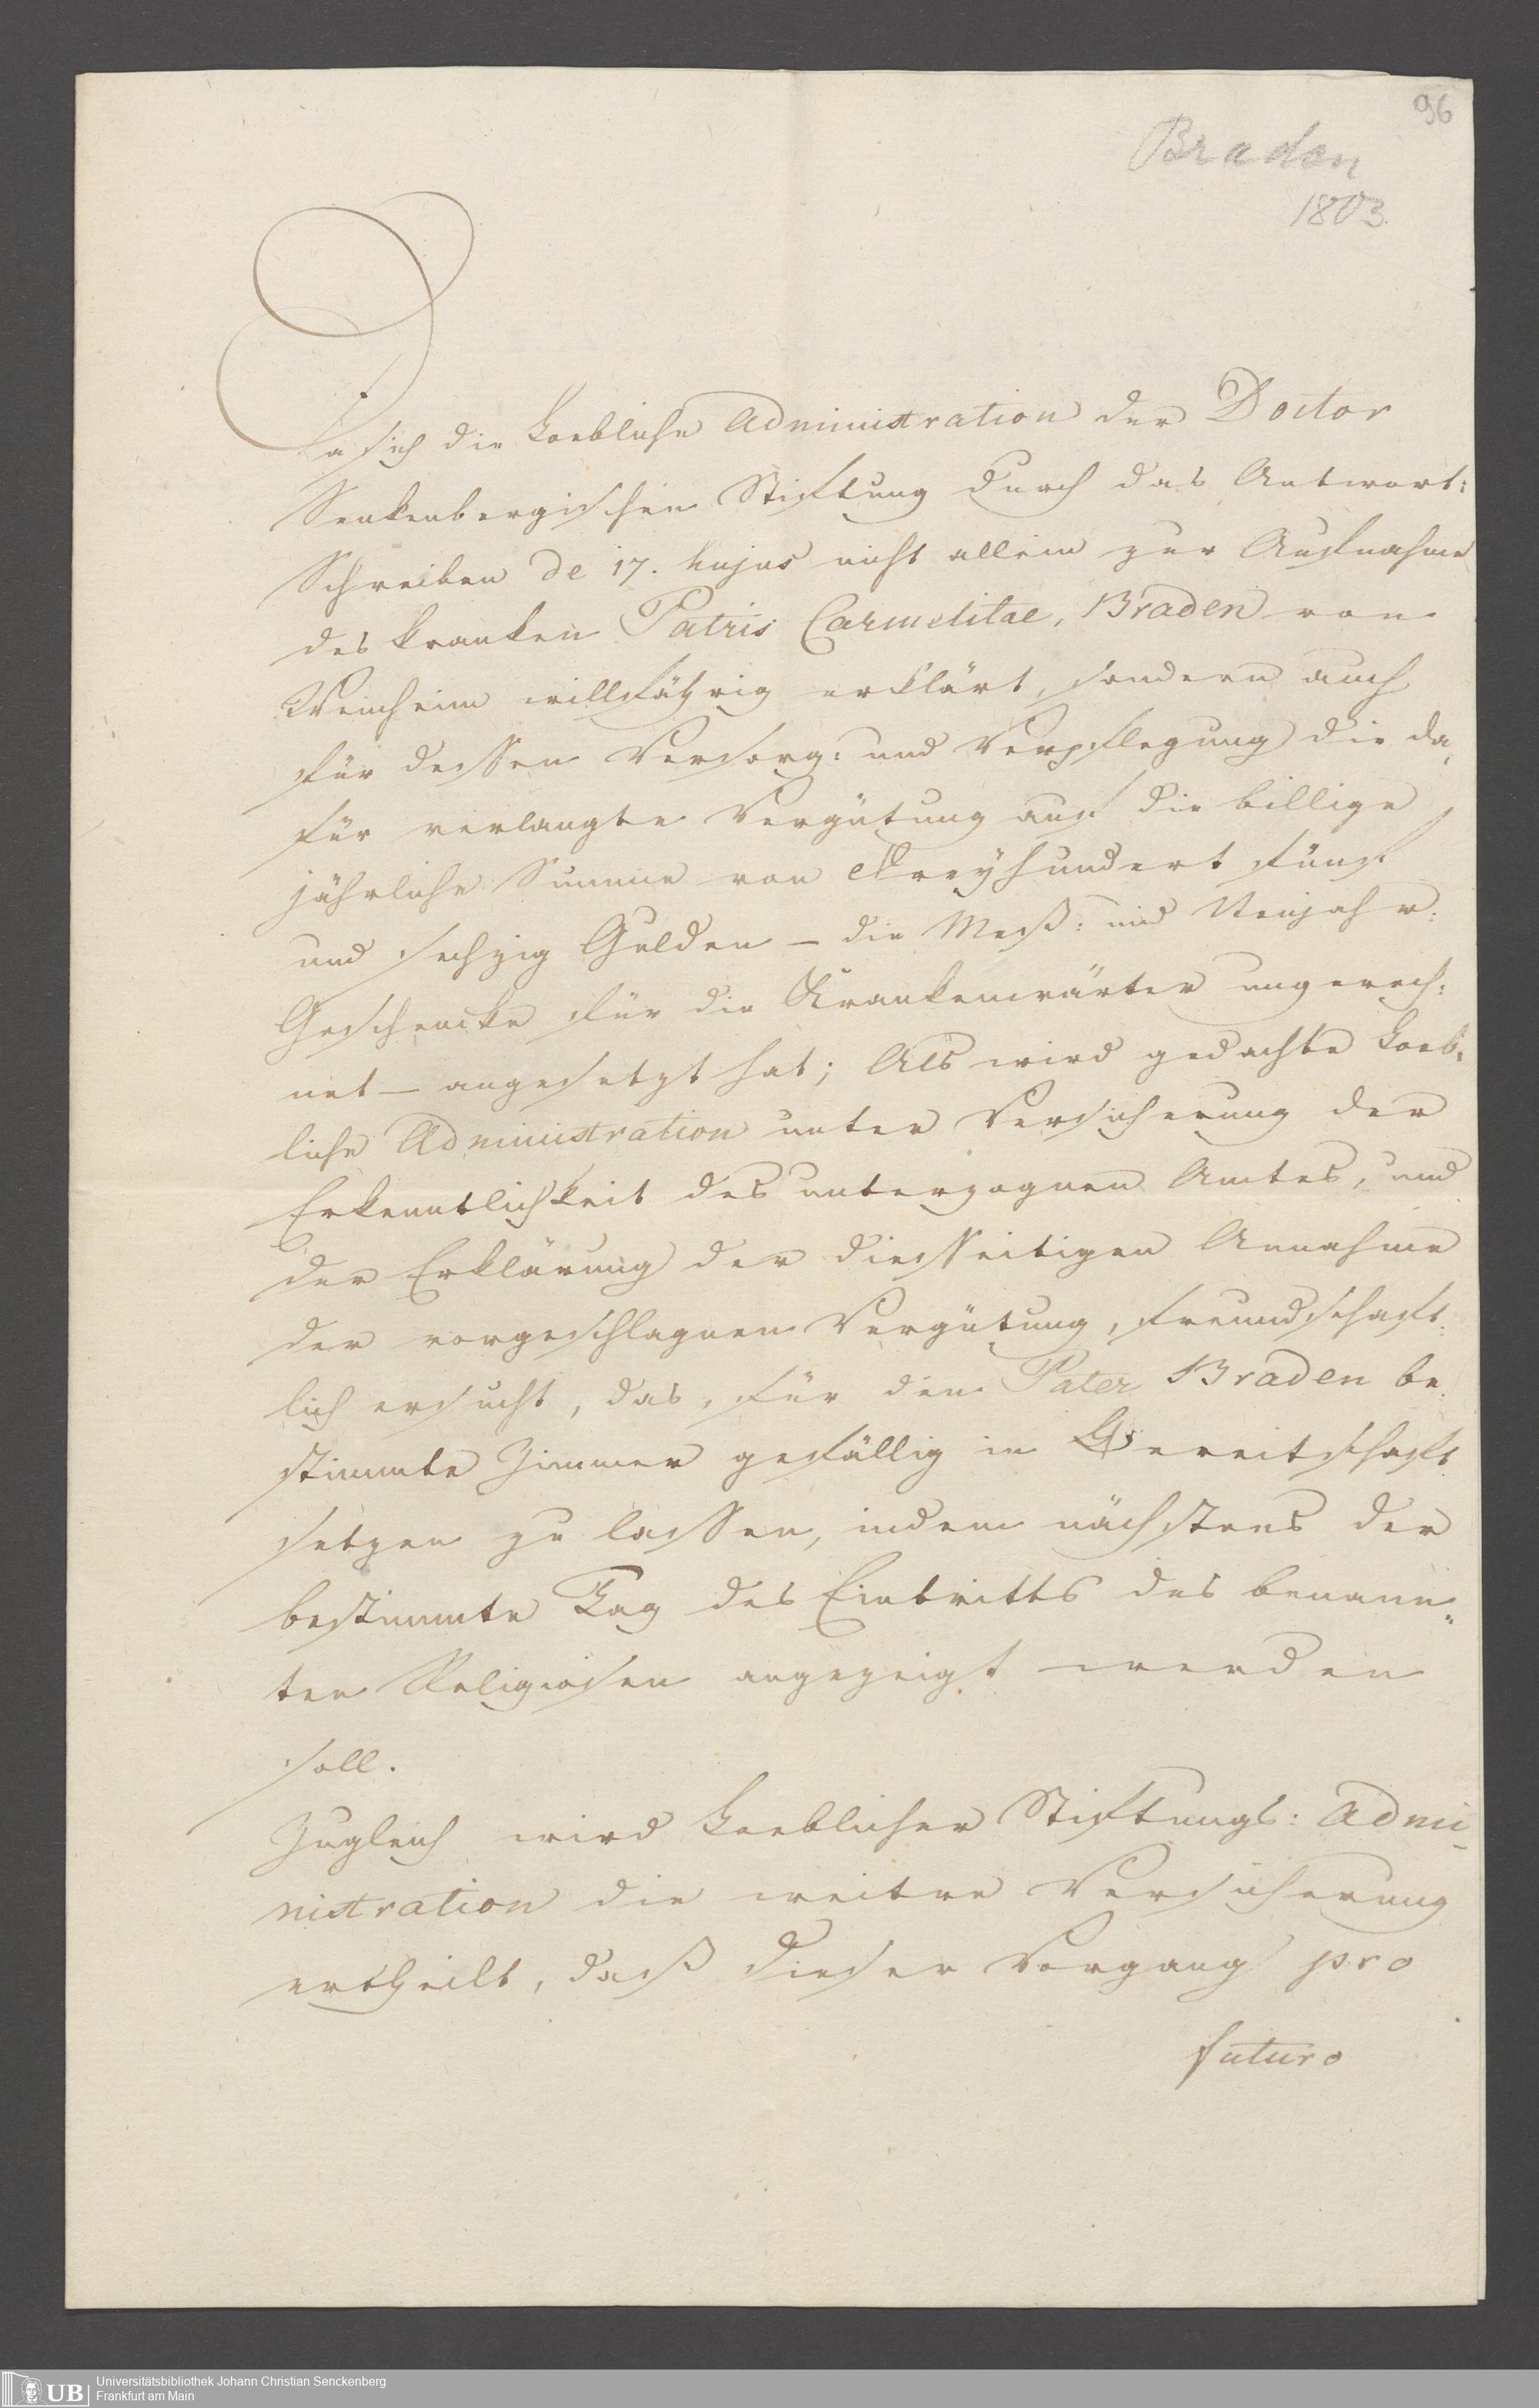 96
Braden
1803.
Da sich die Loebliche Administration der Doctor
Senkenbergischen Stiftung durch das Antwort:
Schreiben de 17. hujus nicht allein zur Aufnahme
des kranken Patris Carmelitae, Braden von
Weinheim willfährig erklärt, sondern auch
für dessen Versorg: und Verpflegung die da,
für verlangte Vergütung auf die billige
jährliche Summe von Dreyhundert fünf
und sechzig Gulden – die Meß: und Neujahr:
Geschencke für die Krankenwärter ungerech:
net – angesetzt hat; Als wird gedachte Loeb:
liche Administration unter Versicherung der
Erkenntlichkeit des unterzognen Amtes, und
der Erklärung der diesseitigen Annahme
der vorgeschlagnen Vergütung, freundschaft:
lich ersucht, das, für den Pater Braden be:
stimmte Zimmer gefällig in Bereitschaft
setzen zu lassen, indem nächstens der
bestimmte Tag des Eintritts des benann„
ten Religiosen angezeigt werden
soll.
Zugleich wird Loeblicher Stiftungs: Admi-
nistration die weitere Versicherung
ertheilt, daß dieser Vorgang pro
futuro
UB
Universitätsbibliothek Johann Christian Senckenberg
Frankfurt am Main